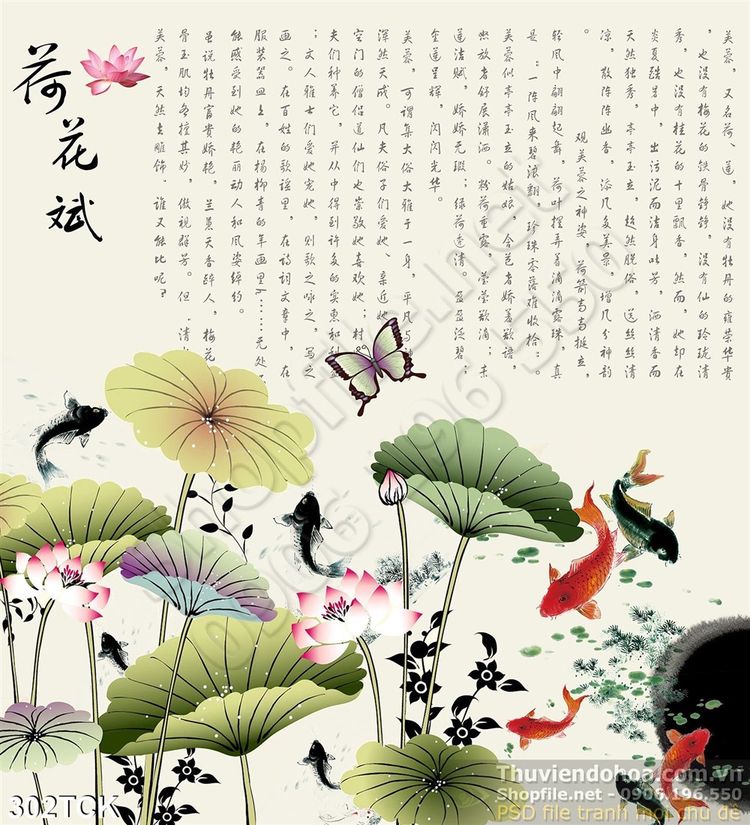 芙蓉，又名荷、蓮，她沒有牡丹的雍荣华貴
，也沒有梅花的铁骨錚錚，沒有仙的玲珑清
秀，也沒有桂花的十里飘香，然而，她却在
炎夏中，出污泥而洁身芳，洒清香而
天然独秀，亭亭玉立，超然脱俗，送丝丝清
凉，散阵阵幽香，添几多美景，增几分神韵
观芙蓉之神姿，荷箭高高挺立，
轻风中翩翩起舞，荷叶捏弄着滴滴露珠，真
是：“一阵风来碧浪翻，珍珠零落难收拾”。
芙蓉似亭亭玉立的姑娘，含苞者娇羞欲语，
欲放者舒展潇洒。粉荷垂露，莹莹欲滴；素
蓮洁赋，娇娇无瑕；绿荷连清。盈盈泛碧；
金蓮呈辉，闪闪光华。
芙蓉，可谓集大俗大雅于一身，平凡与
浑然天成。凡夫俗子们爱她、亲近她
空门的僧侣道仙们也崇敬她喜欢她；村
夫们种养它，并从中得到许多的实惠和
；文人雅士们爱她宠她，则歌之咏之，写之
画之。在百姓的歌谣里，在詩詞文章中，在
服装器皿上，在楊柳青的年画里……无处
能感受到她的艳丽动人和风姿绰约。
虽说牡丹富貴娇艳，兰蕙天香醉人，梅花
骨玉肌均各擅其妙，傲视群芳。但“清
芙蓉，天然去雕饰”谁又能比呢？
荷花斌
302TCK
Thuviendohoa.com.vn
Shopfile.net - 0906.196.550
PSD file tranh mọi chủ đề